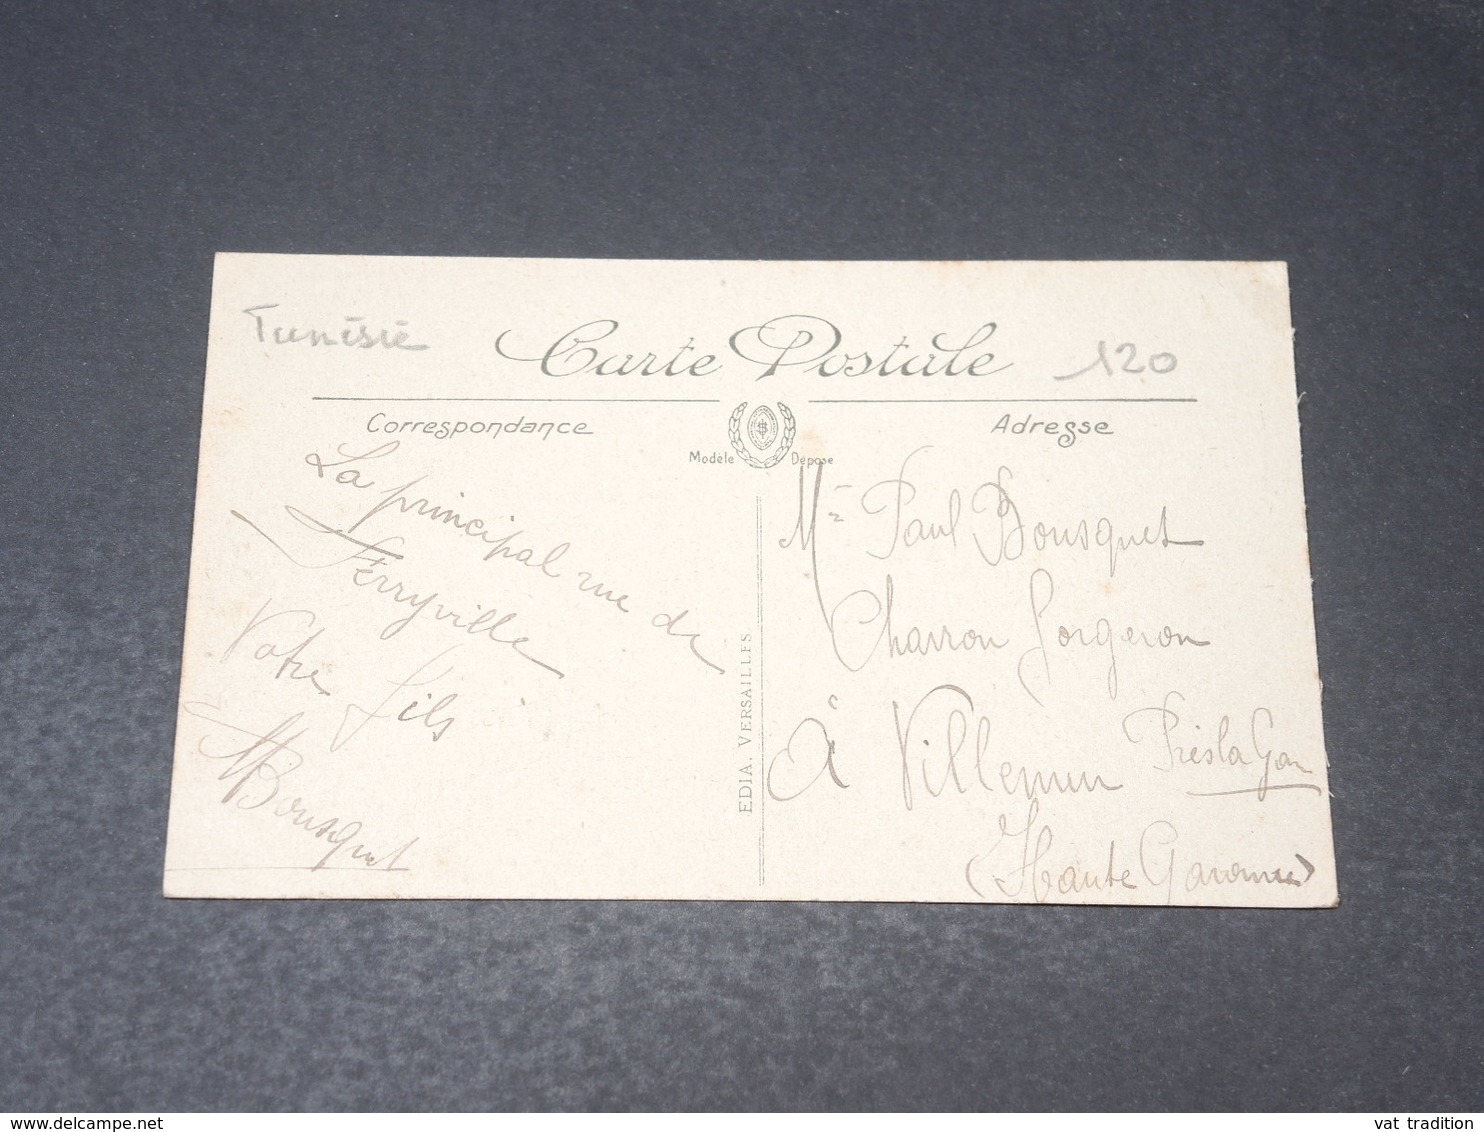 Tunisie
Carte Postale
120
Correspondance
Adresse
Modèle Déposé
La principal rue de
Ferryville
Votre fils
Bousquet
EDIA. VERSAILLES
Mr Paul Bousquet
Charron Forgeron
À Villemur Près la Gare
(Haute Garonne)
www.delcampe.net
vat tradition